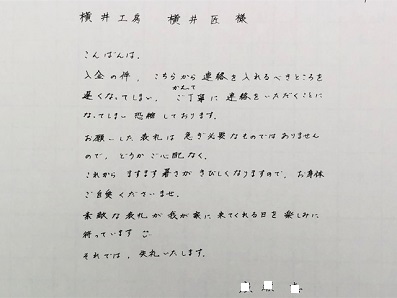 横井工房 横井匠 様
こんばんは。
入金の件、こちらから連絡を入れるべきところを
遅くなってしまい、かえってご丁寧に連絡をいただくことに
なってしまい恐縮しております。
お願いした表札は急ぎ必要なものではありません
ので、どうかご心配なく。
これからますます暑さがきびしくなりますので、お身体
ご自愛くださいませ。
素敵な表札が我が家に来てくれる日を楽しみに
待っています
それでは、失礼いたします。